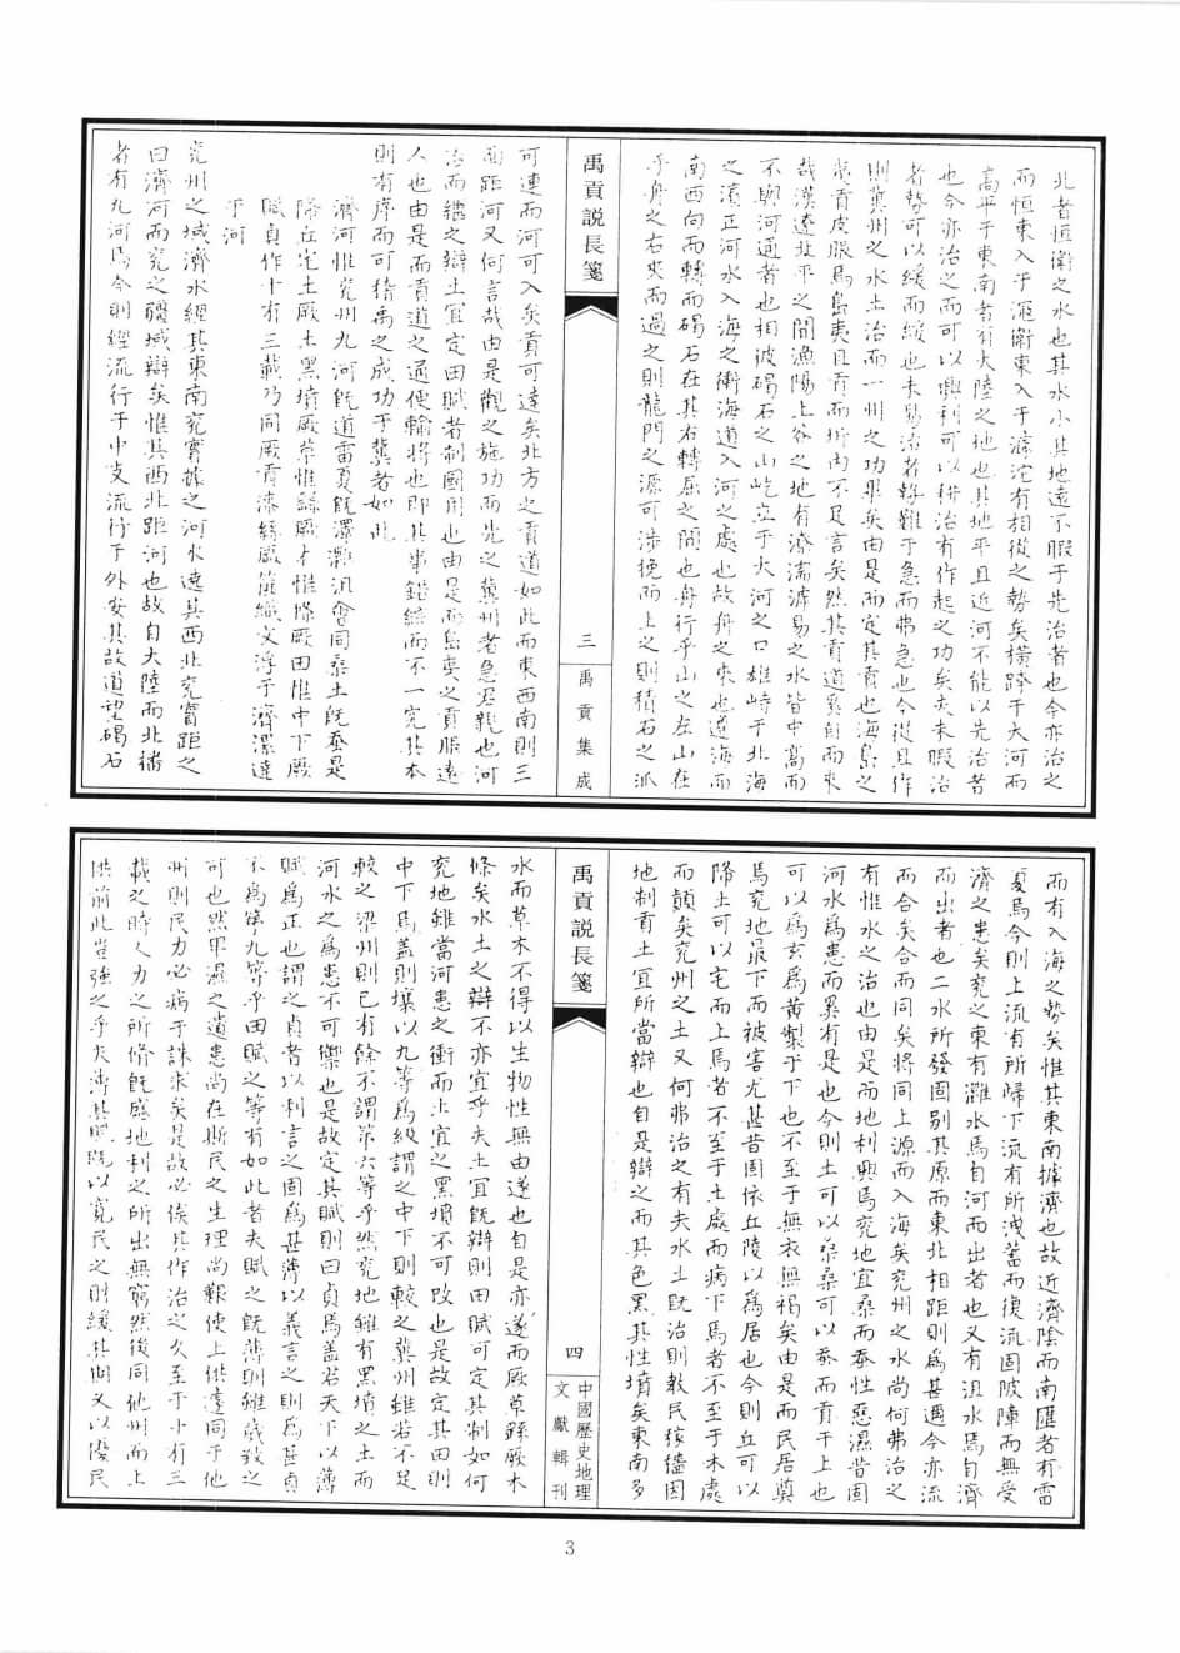 北者恒衛之水也其水小其地遠不暇于先治者也今亦治之
而恒東入于滱衛東入于滹沱有相從之勢矣橫跨于大河而
高平于東南者有大陸之地也其地平且近河不能以先治者
也今亦治之而可以興利可以耕治有作起之功矣夫未暇治
者勢可以緩而緩也未易治者難于急而弗急也今從且作
則冀州之水土治而一州之功畢矣由是而定其貢也海島之
夷貢皮服焉島夷且貢而域內不足言矣然其貢道奚自而來
哉漢遼北平之間漁陽上谷之地有濟濡滹易之水皆中高而
不與河通者也相彼碣石之山屹立乎大河之口雄峙于北海
之濱正河水入海之衝海道入河之處也故舟之來也道海而
南西向而轉而碣石在其右轉屈之間也舟行乎山之左山在
乎舟之右夾而過之則龍門之源可涉挽而上之則積石之派
禹貢說長箋
三
禹貢集成
可連而河可入矣貢可達矣北方之貢道如此而東西南則三
面距河又何言哉由是觀之施功而先之冀州者急君親也河
治而繼之辯土宜定田賦者制國用也由是而島夷之貢服遠
人也由是而貢道之通便輸將也即其事錯綜而不一究其本
則有序而可稽禹之成功乎冀者如此
濟河惟兗州九河既道雷夏既澤灉沮會同桑土既蠶是
降丘宅土厥土黑墳厥草惟繇厥木惟條厥田惟中下厥
賦貞作十有三載乃同厥貢漆絲厥篚織文浮于濟漯達
于河
兗州之域濟水經其東南兗實據之河水遶其西北兗實距之
曰濟河而兗之疆域辯矣惟其西北距河也故自大陸而北播
者有九河焉今則經流行于中支流行于外安其故道望碣石
而有入海之勢矣惟其東南據濟也故近濟陰而南匯者有雷
夏焉今則上流有所歸下流有所洩蓄而復流固陂障而無受
濟之患矣兗之東有灉水焉自河而出者也又有沮水焉自濟
而出者也二水所發固別其原而東北相距則為甚邇今亦流
而合矣合而同矣將同上源而入海矣兗州之水尚何弗治之
有惟水之治也由是而地利興焉兗地宜桑而蚕性惡濕昔固
河水為患而累有是也今則土可以桑桑可以蚕而貢于上也
可以為玄為黃製乎下也不至于無衣無褐矣由是而民居奠
焉兗地最下而被害尤甚昔固依丘陵以為居也今則丘可以
降土可以宅而上焉者不至于土處而病下焉者不至于木處
而顛矣兗州之土又何弗治之有夫水土既治則教民稼穡因
地制貢土宜所當辯也自是辯之而其色黑其性墳矣東南多
禹貢說長箋
四
中國歷史地理
文獻輯刊
水而草木不得以生物性無由遂也自是亦遂而厥草繇厥木
條矣水土之辯不亦宜乎夫土宜既辯則田賦可定其制如何
兗地雖當河患之衝而土宜之黑墳不可改也是故定其田則
中下焉蓋則壤以九等為級謂之中下則較之冀州雖若不足
較之梁州則已有餘不謂第六等乎然兗地雖有黑墳之土而
河水之為患不可禦也是故定其賦則曰貞焉蓋君天下以薄
賦為正也謂之貞者以利言之固為甚薄以義言之則為至貞
不為第九等乎田賦之等有如此者夫賦之既薄則雖歲歛之
可也然卑濕之遺患尚在斯民之生理尚艱使上供遽同于他
州則民力必病于誅求矣是故必俟其作治之久至于十有三
載之時人力之所修既盡地利之所出無窮然後同他州而上
供前此豈強之乎夫薄其賦既以寬民之財緩其期又以優民
3